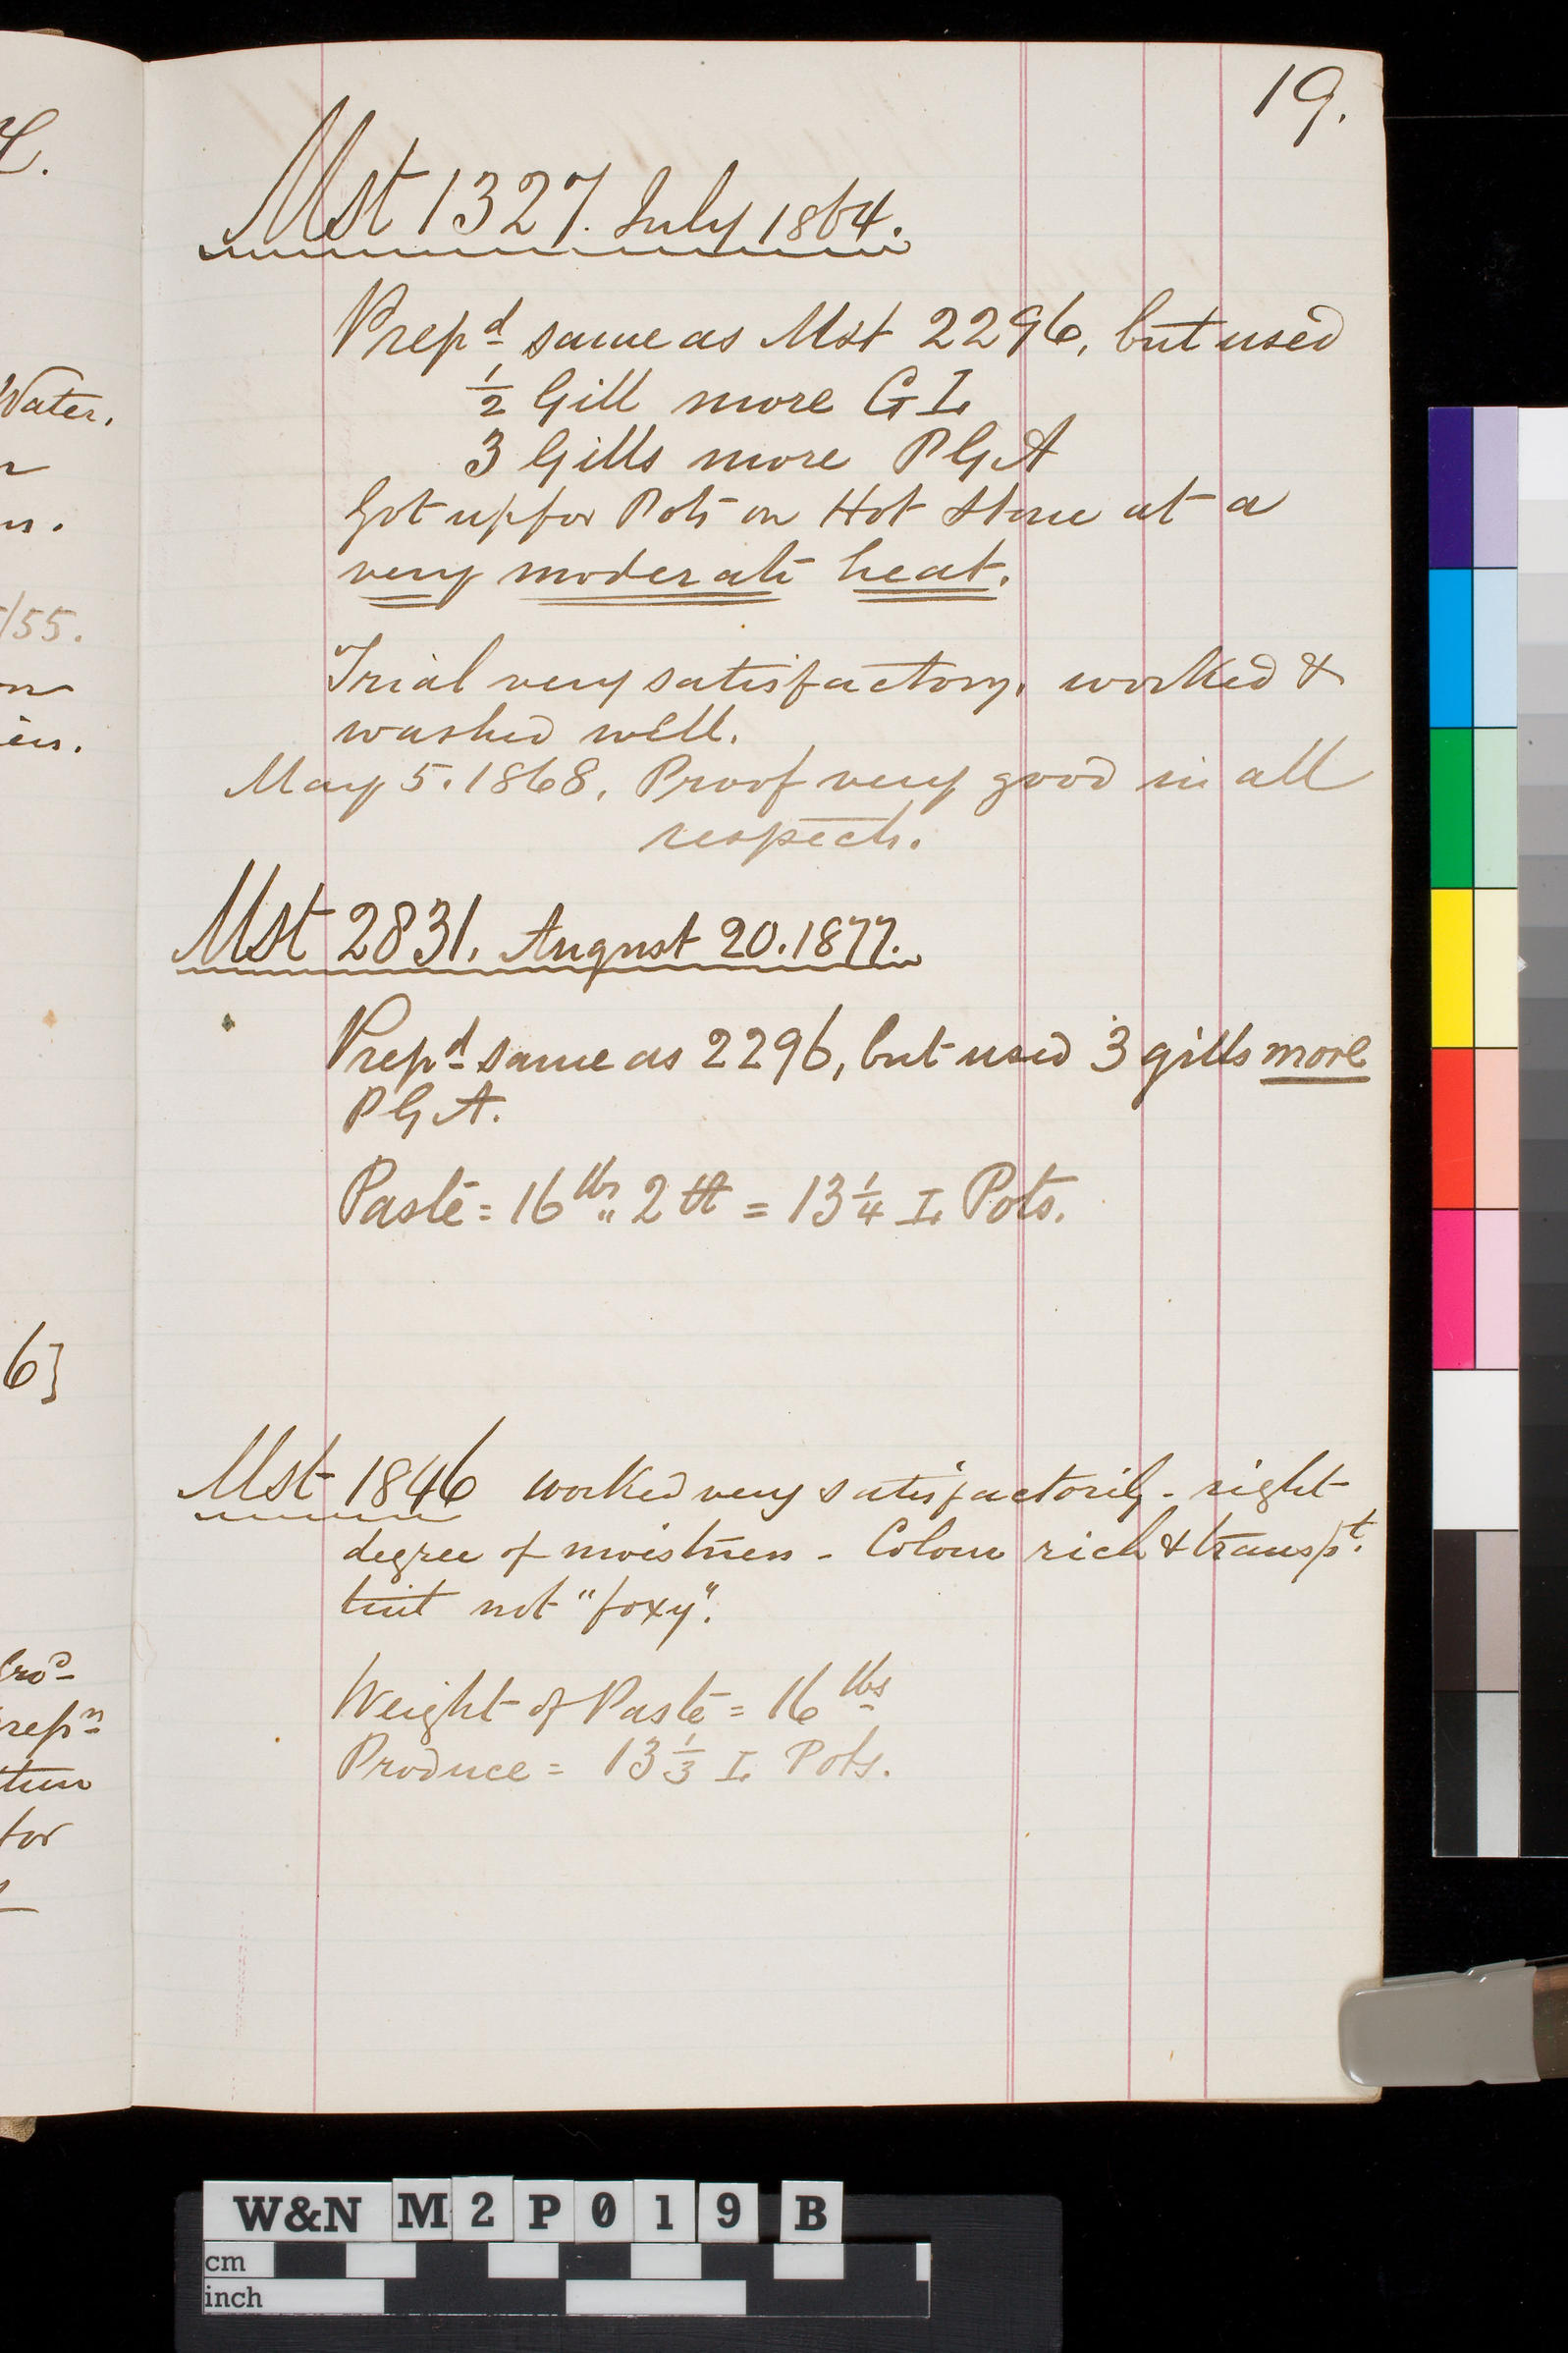 19.
Mst 1327. July 1864.
Prepd same as Mst 2296, but used
1/2 Gill more G I.
3 Gills more P G A
Got up for Pots on Hot Stone at a
very moderate heat.
Trial very satisfactory, worked &
washed well.
May 5. 1868. Proof very good in all
respects.
Mst 2831. August 20. 1877.
Prepd same as 2296, but used 3 gills more
P G A.
Paste = 16 lbs „ 2 = 13 1/4 I. Pots.
Mst 1846 worked very satisfactorily - right
degree of moistness - Colour rich & transpt.
tint not "foxy".
Weight of Paste = 16 lbs
Produce = 13 1/3 I. Pots.
Water.
/55.
6]
for
W&N M2P019 B
cm
inch